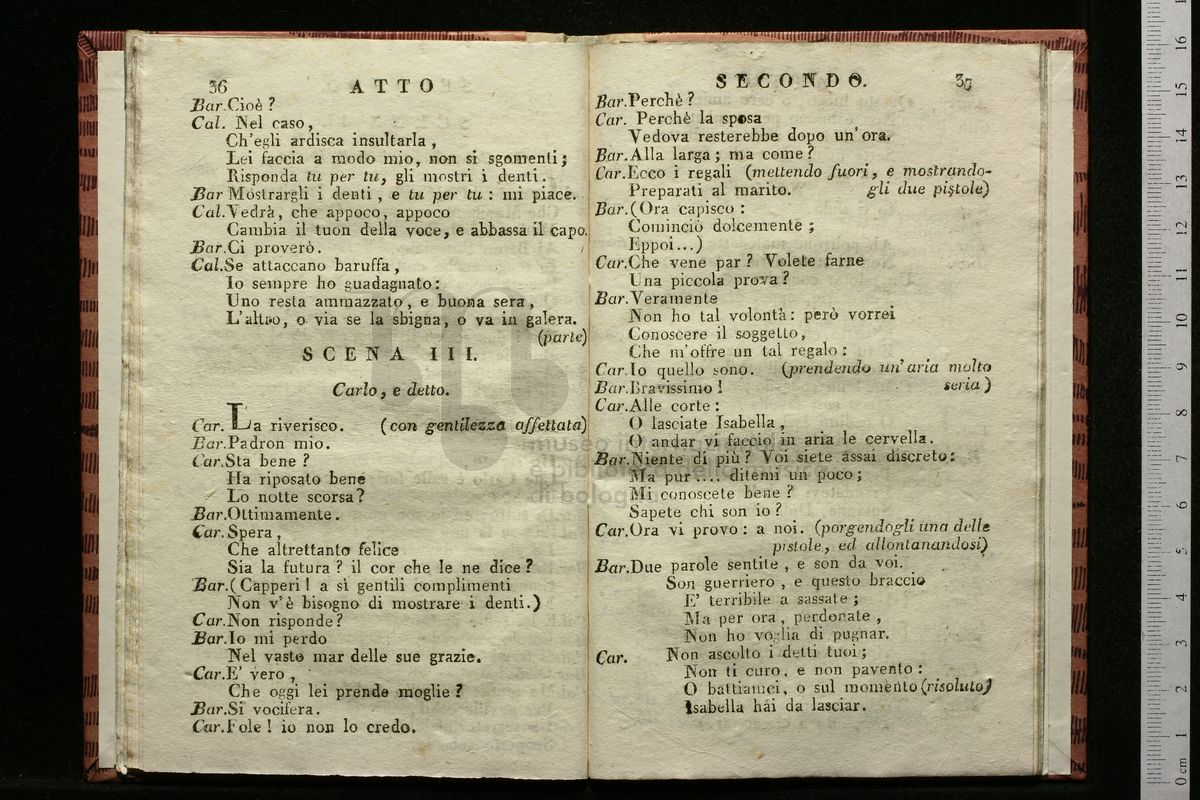 36 ATTO
Bar.Cioè ?
Cal. Nel caso,
Ch'egli ardisca insultarla ,
Lei faccia a modo mio, non si sgomenti;
Risponda tu per tu, gli mostri i denti.
Bar Mostrargli i denti , e tu per tu : mi piace.
Cal.Vedrà, che appoco, appoco
Cambia il tuon della voce, e abbassa il capo.
Bar.Ci proverò.
Cal.Se attaccano baruffa ,
Io sempre ho guadagnato:
Uno resta ammazzato, e buona sera ,
L'altro, o via se la sbigna, o va in galera.
(parte)
SCENA III.
Carlo, e detto.
Car. La riverisco. (con gentilezza affettata)
Bar.Padron mio.
Car.Sta bene ?
Ha riposato bene
Lo notte scorsa?
Bar.Ottimamente.
Car.Spera ,
Che altrettanto felice
Sia la futura ? il cor che le ne dice ?
Bar.(Capperi ! a sì gentili complimenti
Non v'è bisogno di mostrare i denti.)
Car.Non risponde?
Bar.Io mi perdo
Nel vasto mar delle sue grazie.
Car.E' vero ,
Che oggi lei prende moglie ?
Bar.Si vocifera.
Car.Fole ! io non lo credo.
SECONDO. 37
Bar.Perchè ?
Car. Perchè la sposa
Vedova resterebbe dopo un' ora.
Bar.Alla larga ; ma come ?
Car.Ecco i regali (mettendo fuori, e mostrando-
Preparati al marito. gli due pistole)
Bar.(Ora capisco :
Cominciò dolcemente ;
Eppoi...)
Car.Che vene par ? Volete farne
Una piccola prova ?
Bar.Veramente
Non ho tal volontà : però vorrei
Conoscere il soggetto,
Che m'offre un tal regalo :
Car.Io quello sono. (prendendo un'aria molto
Bar.Bravissimo ! seria )
Car.Alle corte :
O lasciate Isabella ,
O andar vi faccio in aria le cervella.
Bar.Niente di più ? Voi siete assai discreto:
Ma pur .... ditemi un poco ;
Mi conoscete bene ?
Sapete chi son io ?
Car.Ora vi provo : a noi. (porgendogli una delle
pistole, ed allontanandosi)
Bar.Due parole sentite , e son da voi.
Son guerriero , e questo braccio
E' terribile a sassate ;
Ma per ora , perdonate ,
Non ho voglia di pugnar.
Car. Non ascolto i detti tuoi ;
Non ti curo, e non pavento :
O battiamci, o sul momento (risoluto)
Isabella hai da lasciar.
museo in
e biblioteca della musica
di bologna
0 cm 1 2 3 4 5 6 7 8 9 10 11 12 13 14 15 16